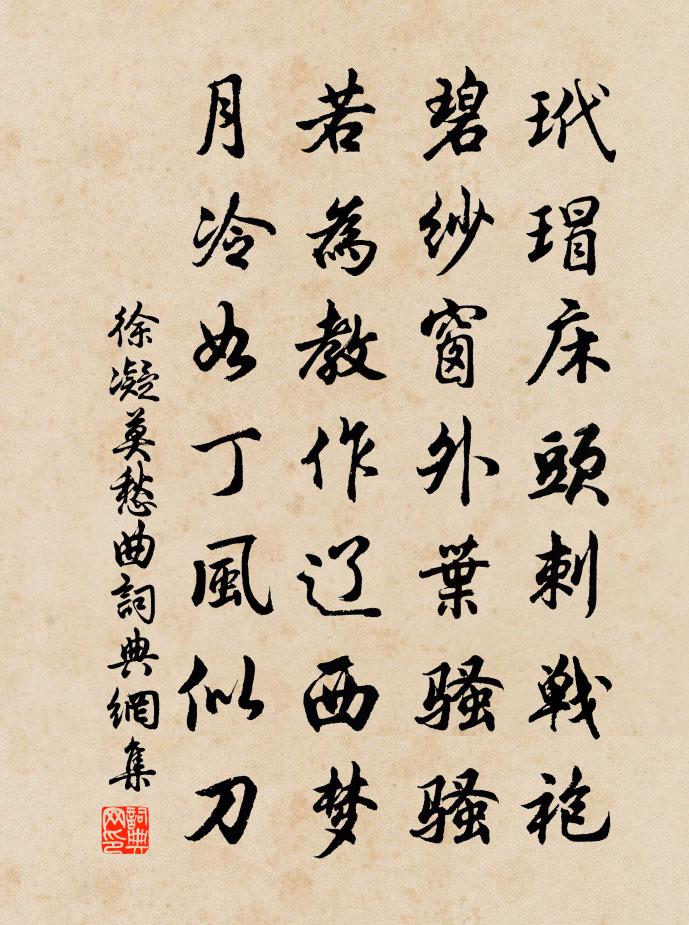 玳瑁床頭刺戦袍
碧紗窗外葉騷騷
若為教作辽西梦
月冷如丁風似刀
徐凝莫愁曲詞典網集
詞典网印